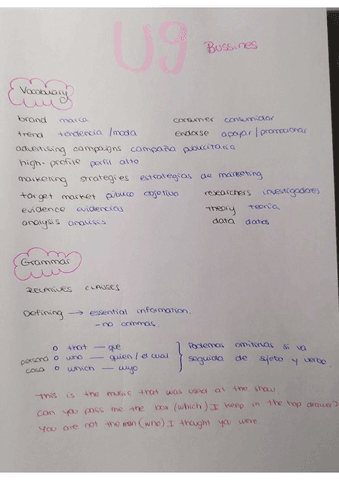 U9 Bussines
Vocabulary
brand marca
consumer consumidor
trend tendencia/moda
endorse apoyar/promocionar
advertising campaigns campaña publicitaria
high-profile perfil alto
marketing strategies estrategias de marketing
target market público objetivo
researchers investigadores
evidence evidencias
theory teoría
analysis analisis
data datos
Grammar
RELATIVES CLAUSES
Defining → essential information.
- no commas.
o that — que
persona o who — quien/el cual
cosa o which — cuyo
Podemos omitirlos si va
seguida de sujeto y verbo
This is the music that was used at the show
Can you pass me the box (which) I keep in the top drawer?
You are not the man (who) I thought you were.